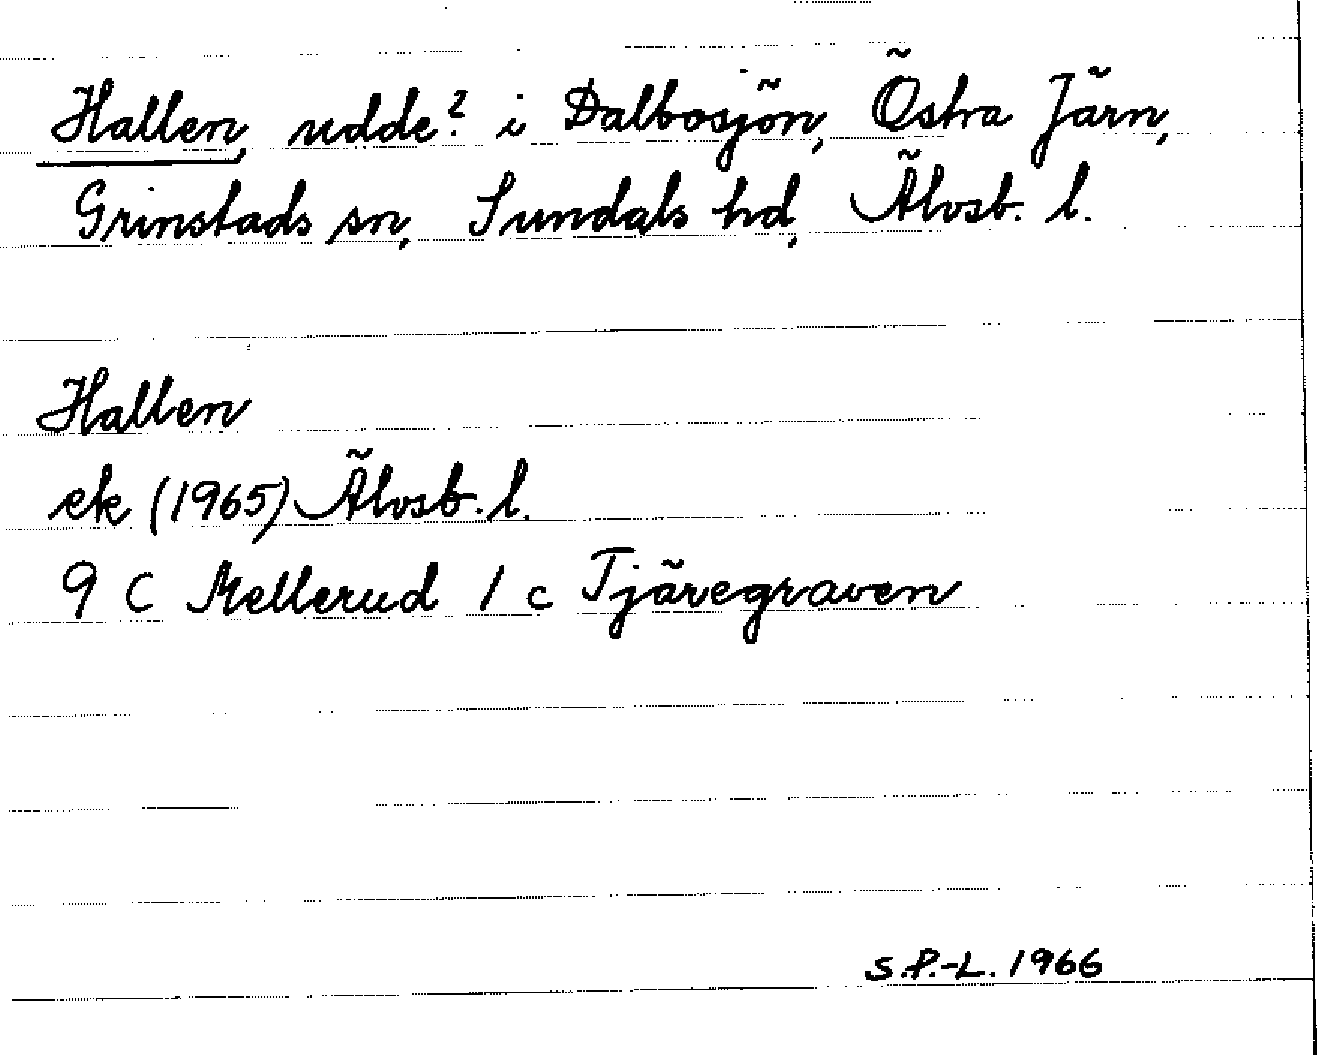 Hallen, udde? i Dalbosjön, Östra Järn,
Grinstads sn, Sundals hd, Älvsb. l.
Hallen
ek (1965) Älvsb. l.
9 C Mellerud 1 c Tjäregraven
S.P.-L. 1966